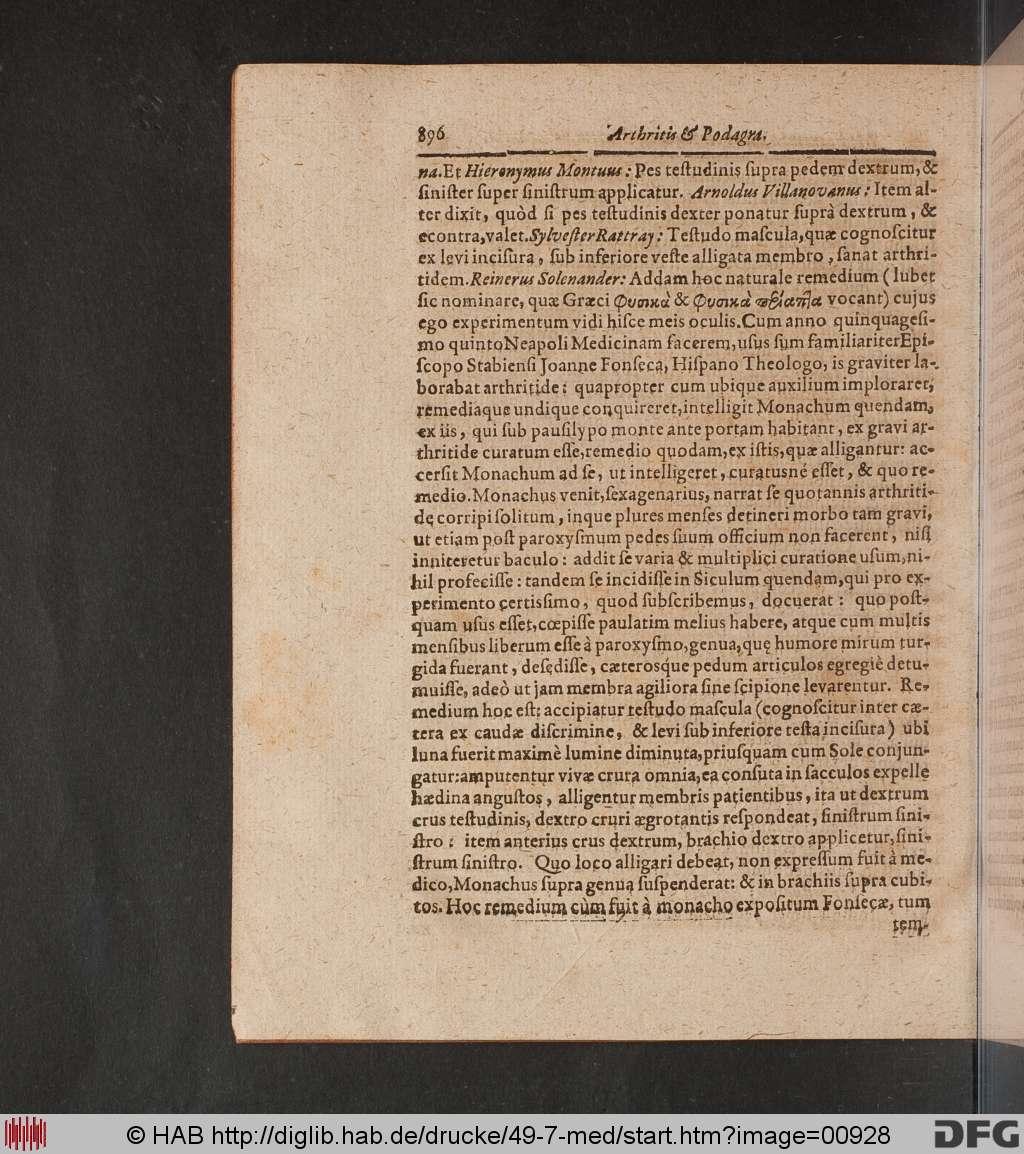 896 Arthritis & Podagra.
na. Et Hieronymus Montuus: Pes teſtudinis ſupra pedem dextrum, &
ſiniſter ſuper ſiniſtrum applicatur. Arnoldus Villanovanus: Item al-
ter dixit, quòd ſi pes teſtudinis dexter ponatur ſuprà dextrum, &
econtra, valet. Sylveſter Rattray: Teſtudo maſcula, quæ cognoſcitur
ex levi inciſura, ſub inferiore veſte alligata membro, ſanat arthri-
tidem. Reinerus Solenander: Addam hoc naturale remedium (lubet
ſic nominare, quæ Græci φυσικὰ & φυσικὰ vocant) cujus
ego experimentum vidi hiſce meis oculis. Cum anno quinquageſi-
mo quinto Neapoli Medicinam facerem, uſus ſum familiariter Epi-
ſcopo Stabienſi Joanne Fonſeca, Hiſpano Theologo, is graviter la-
borabat arthritide: quapropter cum ubique auxilium imploraret,
remediaque undique conquireret, intelligit Monachum quendam,
ex iis, qui ſub pauſilypo monte ante portam habitant, ex gravi ar-
thritide curatum eſſe, remedio quodam, ex iſtis, quæ alligantur: ac-
cerſit Monachum ad ſe, ut intelligeret, curatusné eſſet, & quo re-
medio. Monachus venit, ſexagenarius, narrat ſe quotannis arthriti-
de corripi ſolitum, inque plures menſes detineri morbo tam gravi,
ut etiam poſt paroxyſmum pedes ſuum officium non facerent, niſi
inniteretur baculo: addit ſe varia & multiplici curatione uſum, ni-
hil profeciſſe: tandem ſe incidiſſe in Siculum quendam, qui pro ex-
perimento certiſſimo, quod ſubſcribemus, docuerat: quo poſt-
quam uſus eſſet, cœpiſſe paulatim melius habere, atque cum multis
menſibus liberum eſſe à paroxyſmo, genua, quę humore mirum tur-
gida fuerant, deſediſſe, cæterosque pedum articulos egregiè detu-
muiſſe, adeò ut jam membra agiliora ſine ſcipione levarentur. Re-
medium hoc eſt: accipiatur teſtudo maſcula (cognoſcitur inter cæ-
tera ex caudæ diſcrimine, & levi ſub inferiore teſta inciſura) ubi
luna fuerit maximè lumine diminuta, priuſquam cum Sole conjun-
gatur: amputentur vivæ crura omnia, ea conſuta in ſacculos expelle
hædina anguſtos, alligentur membris patientibus, ita ut dextrum
crus teſtudinis, dextro cruri ægrotantis reſpondeat, ſiniſtrum ſini-
ſtro: item anterius crus dextrum, brachio dextro applicetur, ſini-
ſtrum ſiniſtro. Quo loco alligari debeat, non expreſſum fuit à me-
dico, Monachus ſupra genua ſuſpenderat: & in brachiis ſupra cubi-
tos. Hoc remedium cùm fuit à monacho expoſitum Fonſecæ, tum
tem-
© HAB http://diglib.hab.de/drucke/49-7-med/start.htm?image=00928
DFG